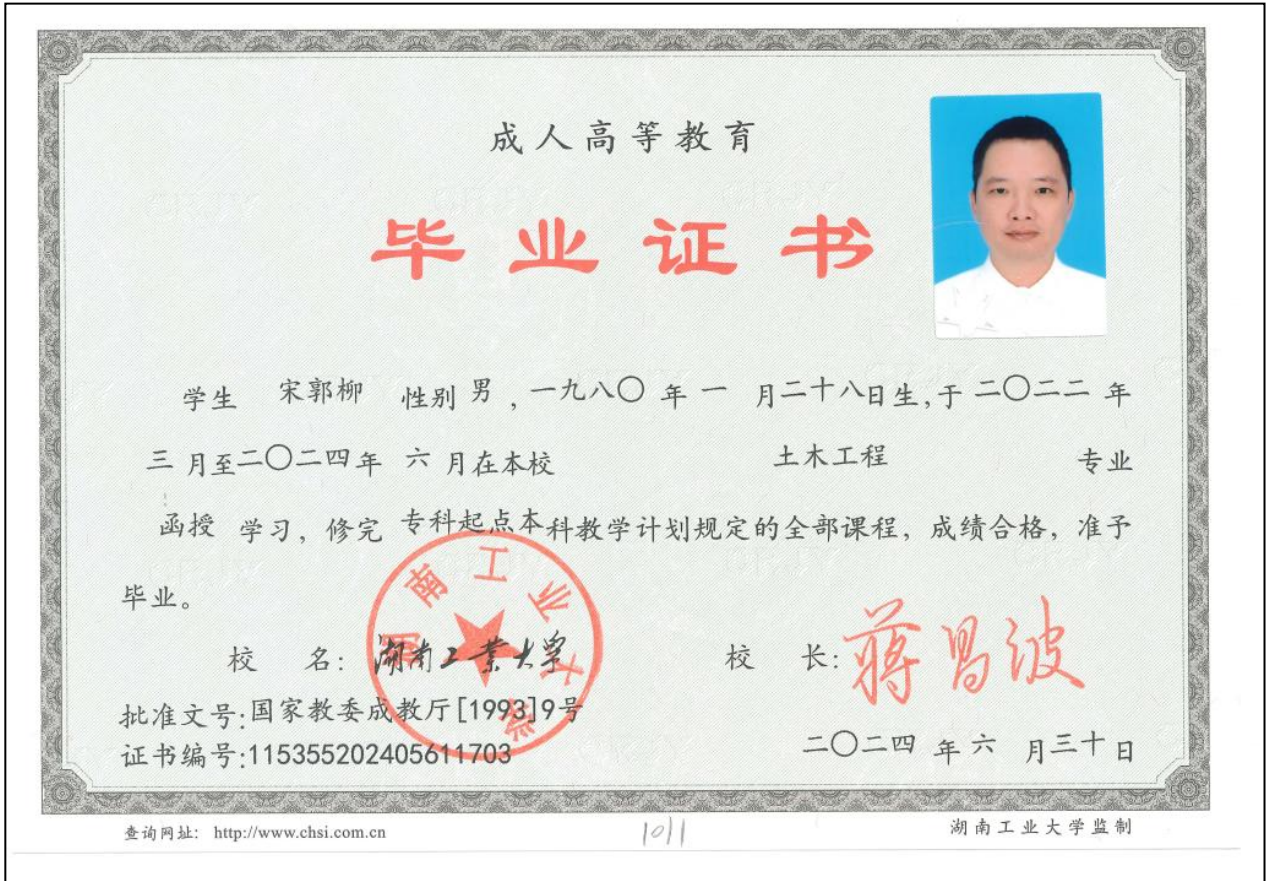 成人高等教育
毕业证书
学生 宋郭柳 性别 男 , 一九八〇 年 一 月二十八日生,于 二〇二二 年
三 月至二〇二四年 六 月在本校 土木工程 专业
函授 学习, 修完 专科起点本科教学计划规定的全部课程, 成绩合格, 准予
毕业。
校 名: 湖南工業大學
校 长: 蒋昌波
湖南工业大学
批准文号:国家教委成教厅[1993]9号
证书编号:115355202405611703
二〇二四 年 六 月三十日
查询网址: http://www.chsi.com.cn
1011
湖南工业大学监制